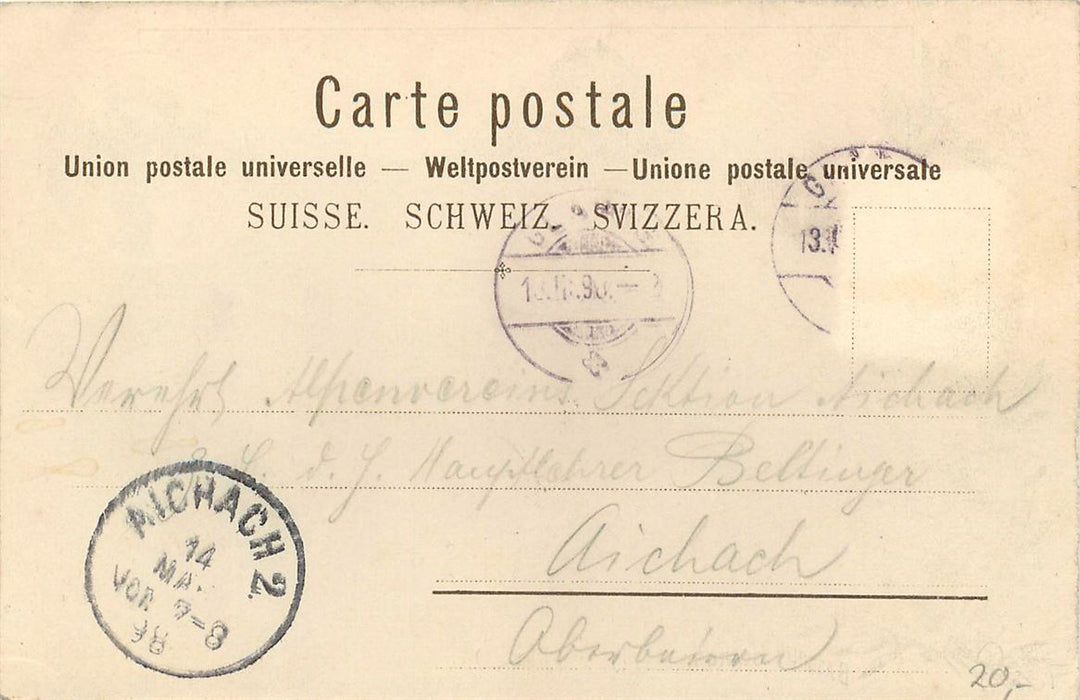 Carte postale
Union postale universelle — Weltpostverein — Unione postale universale
SUISSE. SCHWEIZ. SVIZZERA.
G
13.
Verehrl Alpenvereins Sektion Aichach
d. H. Hauptlehrer Beltinger
Aichach
Oberbaiern
AICHACH 2.
14
MA.
VOR 7-8
20.-